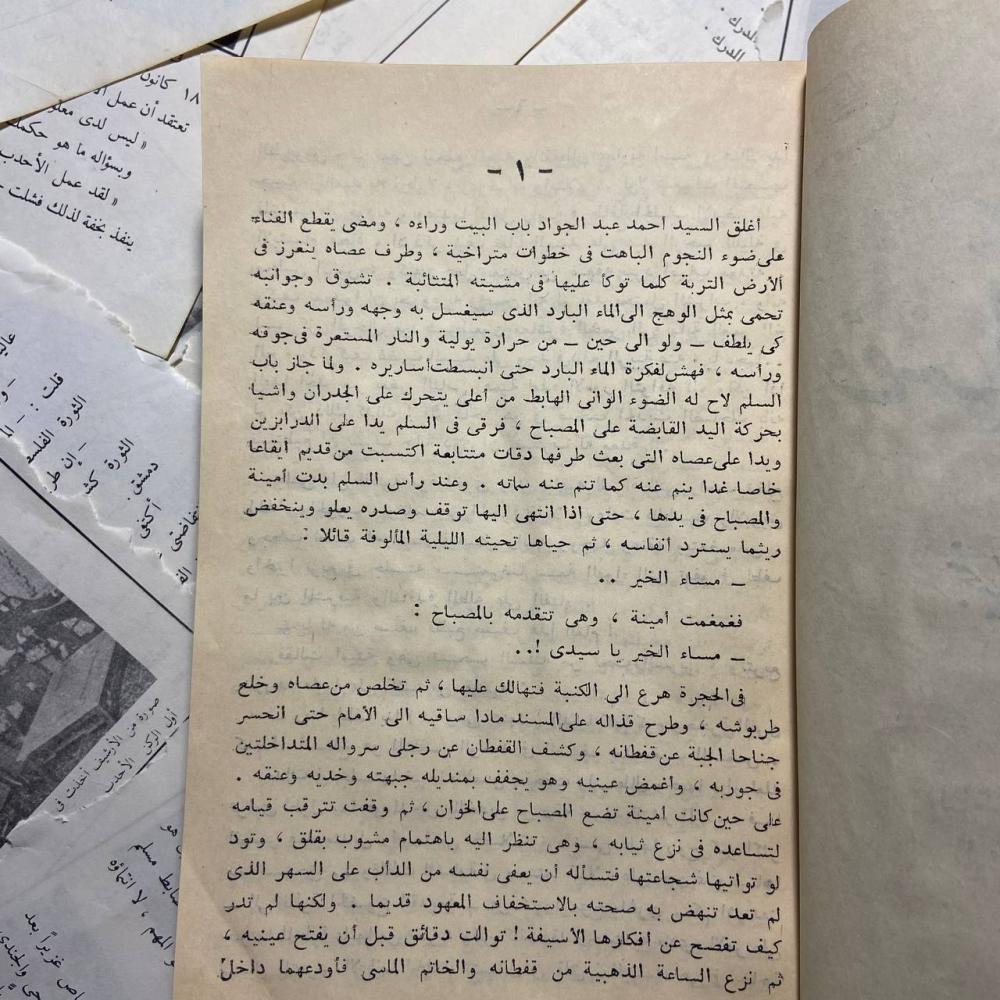 - ١ -
أغلق السيد احمد عبد الجواد باب البيت وراءه ، ومضى يقطع الفناء
على ضوء النجوم الباهت فى خطوات متراخية ، وطرف عصاه ينغرز فى
الأرض التربة كلما توكأ عليها فى مشيته المتثائبة . تشوق وجوانبه
تحمى بمثل الوهج الى الماء البارد الذى سيغسل به وجهه ورأسه وعنقه
كى يلطف ــ ولو الى حين ــ من حرارة يولية والنار المستعرة فى جوفه
ورأسه ، فهش لفكرة الماء البارد حتى انبسطت اساريره . ولما جاز باب
السلم لاح له الضوء الوانى الهابط من أعلى يتحرك على الجدران واشيا
بحركة اليد القابضة على المصباح ، فرقى فى السلم يدا على الدرابزين
ويدا على عصاه التى بعث طرفها دقات متتابعة اكتسبت من قديم ايقاعا
خاصا غدا ينم عنه كما تنم عنه سماته . وعند رأس السلم بدت أمينة
والمصباح فى يدها ، حتى اذا انتهى اليها توقف وصدره يعلو وينخفض
ريثما يسترد انفاسه ، ثم حياها تحيته الليلية المألوفة قائلا :
ــ مساء الخير ..
فغمغمت أمينة ، وهى تتقدمه بالمصباح :
ــ مساء الخير يا سيدى !..
فى الحجرة هرع الى الكنبة فتهالك عليها ، ثم تخلص من عصاه وخلع
طربوشه ، وطرح قذاله على المسند مادا ساقيه الى الأمام حتى انحسر
جناحا الجبة عن قفطانه ، وكشف القفطان عن رجلى سرواله المتداخلتين
فى جوربه ، وأغمض عينيه وهو يجفف بمنديله جبهته وخديه وعنقه .
على حين كانت امينة تضع المصباح على الخوان ، ثم وقفت تترقب قيامه
لتساعده فى نزع ثيابه ، وهى تنظر اليه باهتمام مشوب بقلق ، وتود
لو تواتيها شجاعتها فتسأله أن يعفى نفسه من الدأب على السهر الذى
لم تعد تنهض به صحته بالاستخفاف المعهود قديما . ولكنها لم تدر
كيف تفصح عن افكارها الأسيفة ! توالت دقائق قبل أن يفتح عينيه ،
ثم نزع الساعة الذهبية من قفطانه والخاتم الماسى فأودعهما داخل
الدرك :
الدرك :
١٨ كانون
تعتقد أن عمل
« ليس لدى
وبسؤاله ما هو
« لقد عمل الأحدب
ينفذ بخفة لذلك فشلت
قلت :
الثورة
إن
الثورة
دمشق .
أكتفى
صورة من الأرشيف أخذت فى
أول
الأحدب
هو
ضابط مسلم
المهم ، لا انتماؤه
غزيراً بعد
والجندى